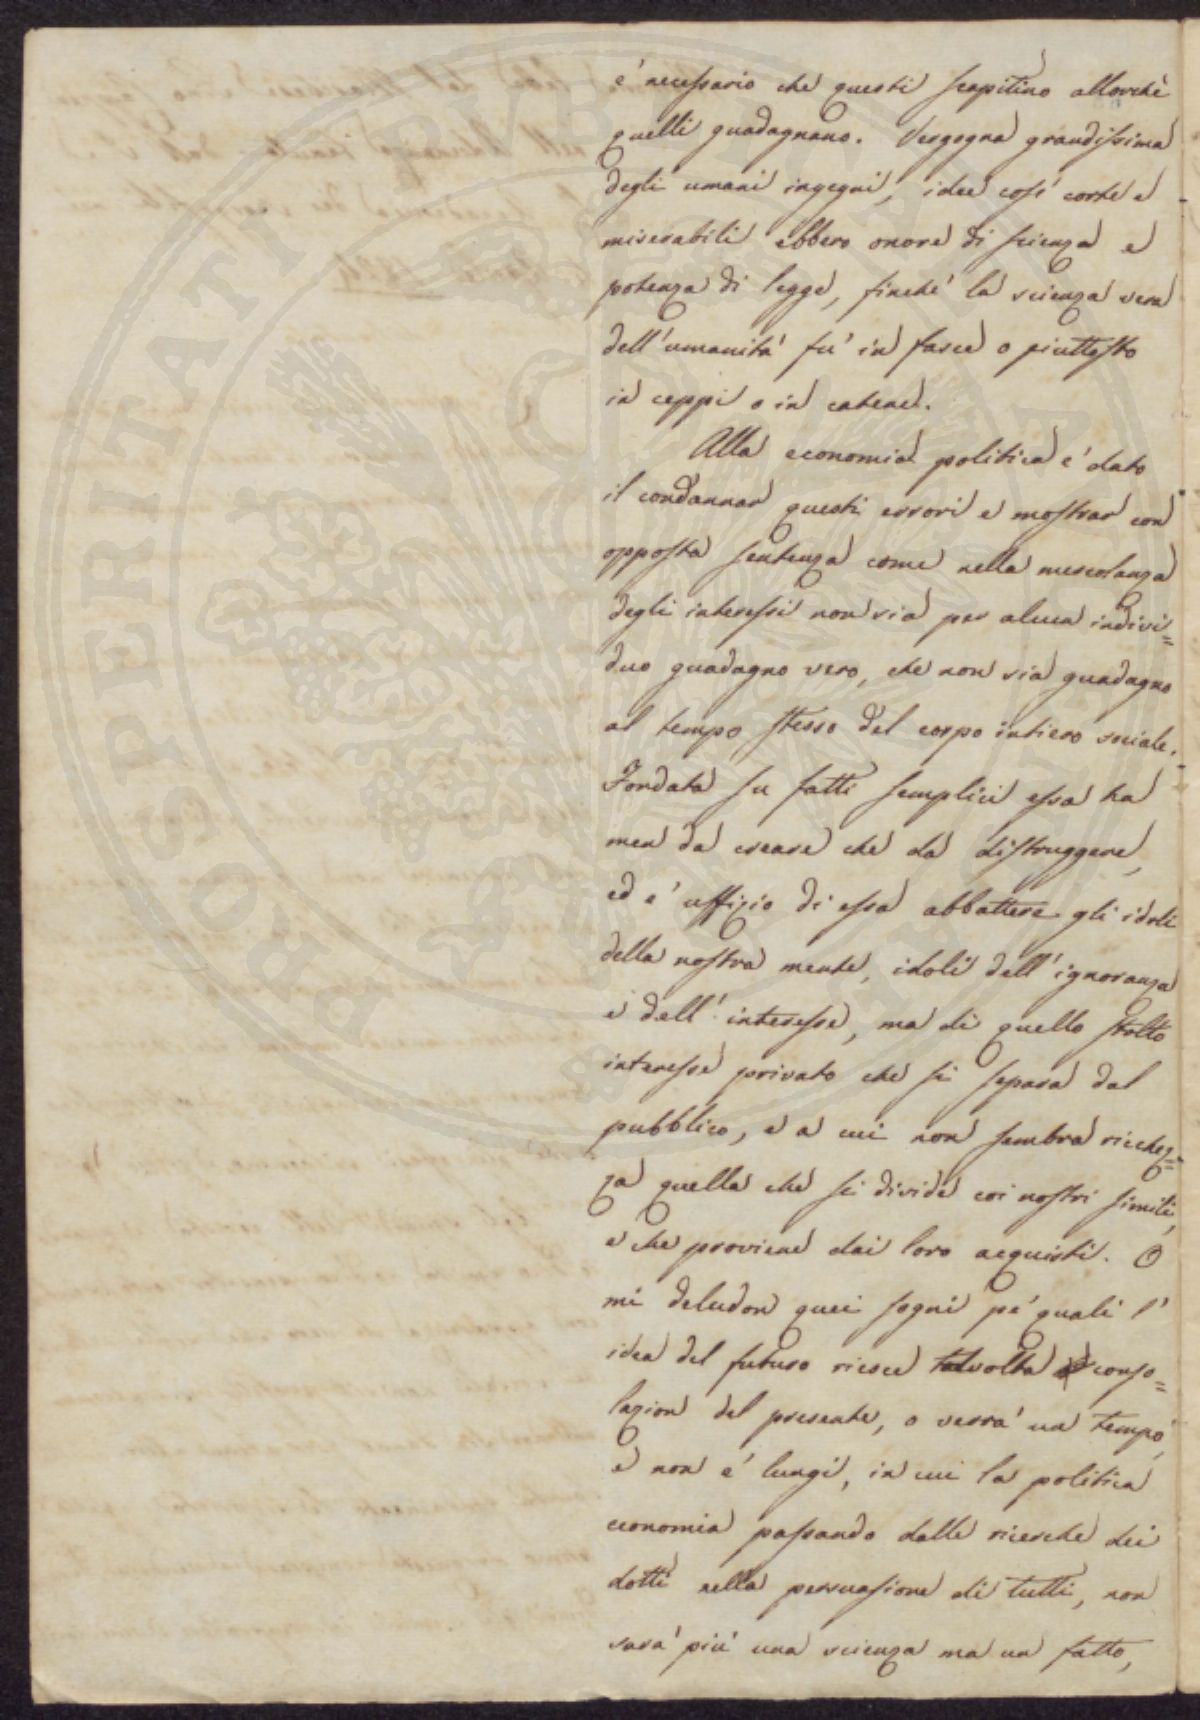 è necessario che questi scapitino allorchè
quelli guadagnano. Vergogna grandissima
degli umani ingegni, idee così corte e
miserabili ebbero onore di scienza e
potenza di legge, finchè la scienza vera
dell'umanità fù in fasce o piuttosto
in ceppi o in catene.
Alla economia politica è dato
il condannar questi errori e mostrar con
opposta sentenza come nella mescolanza
degli interessi non sia per alcun indivi=
duo guadagno vero, che non sia guadagno
al tempo stesso del corpo intiero sociale.
Fondata su fatti semplici essa ha
men da creare che da distruggere,
ed è uffizio di essa abbattere gli idoli
della nostra mente, idoli dell'ignoranza
e dell'interesse, ma di quello stolto
interesse privato che si separa dal
pubblico, e a cui non sembra ricchez=
za quella che si divide coi nostri simili,
e che proviene dai loro acquisti. O
mi deludon quei sogni pe' quali l'
idea del futuro riesce talvolta conso=
lazion del presente, o verrà un tempo,
e non è lungi, in cui la politica
economia passando dalle ricerche dei
dotti nella persuasione di tutti, non
sarà più una scienza ma un fatto,
PROSPERITATI PVBLICAE